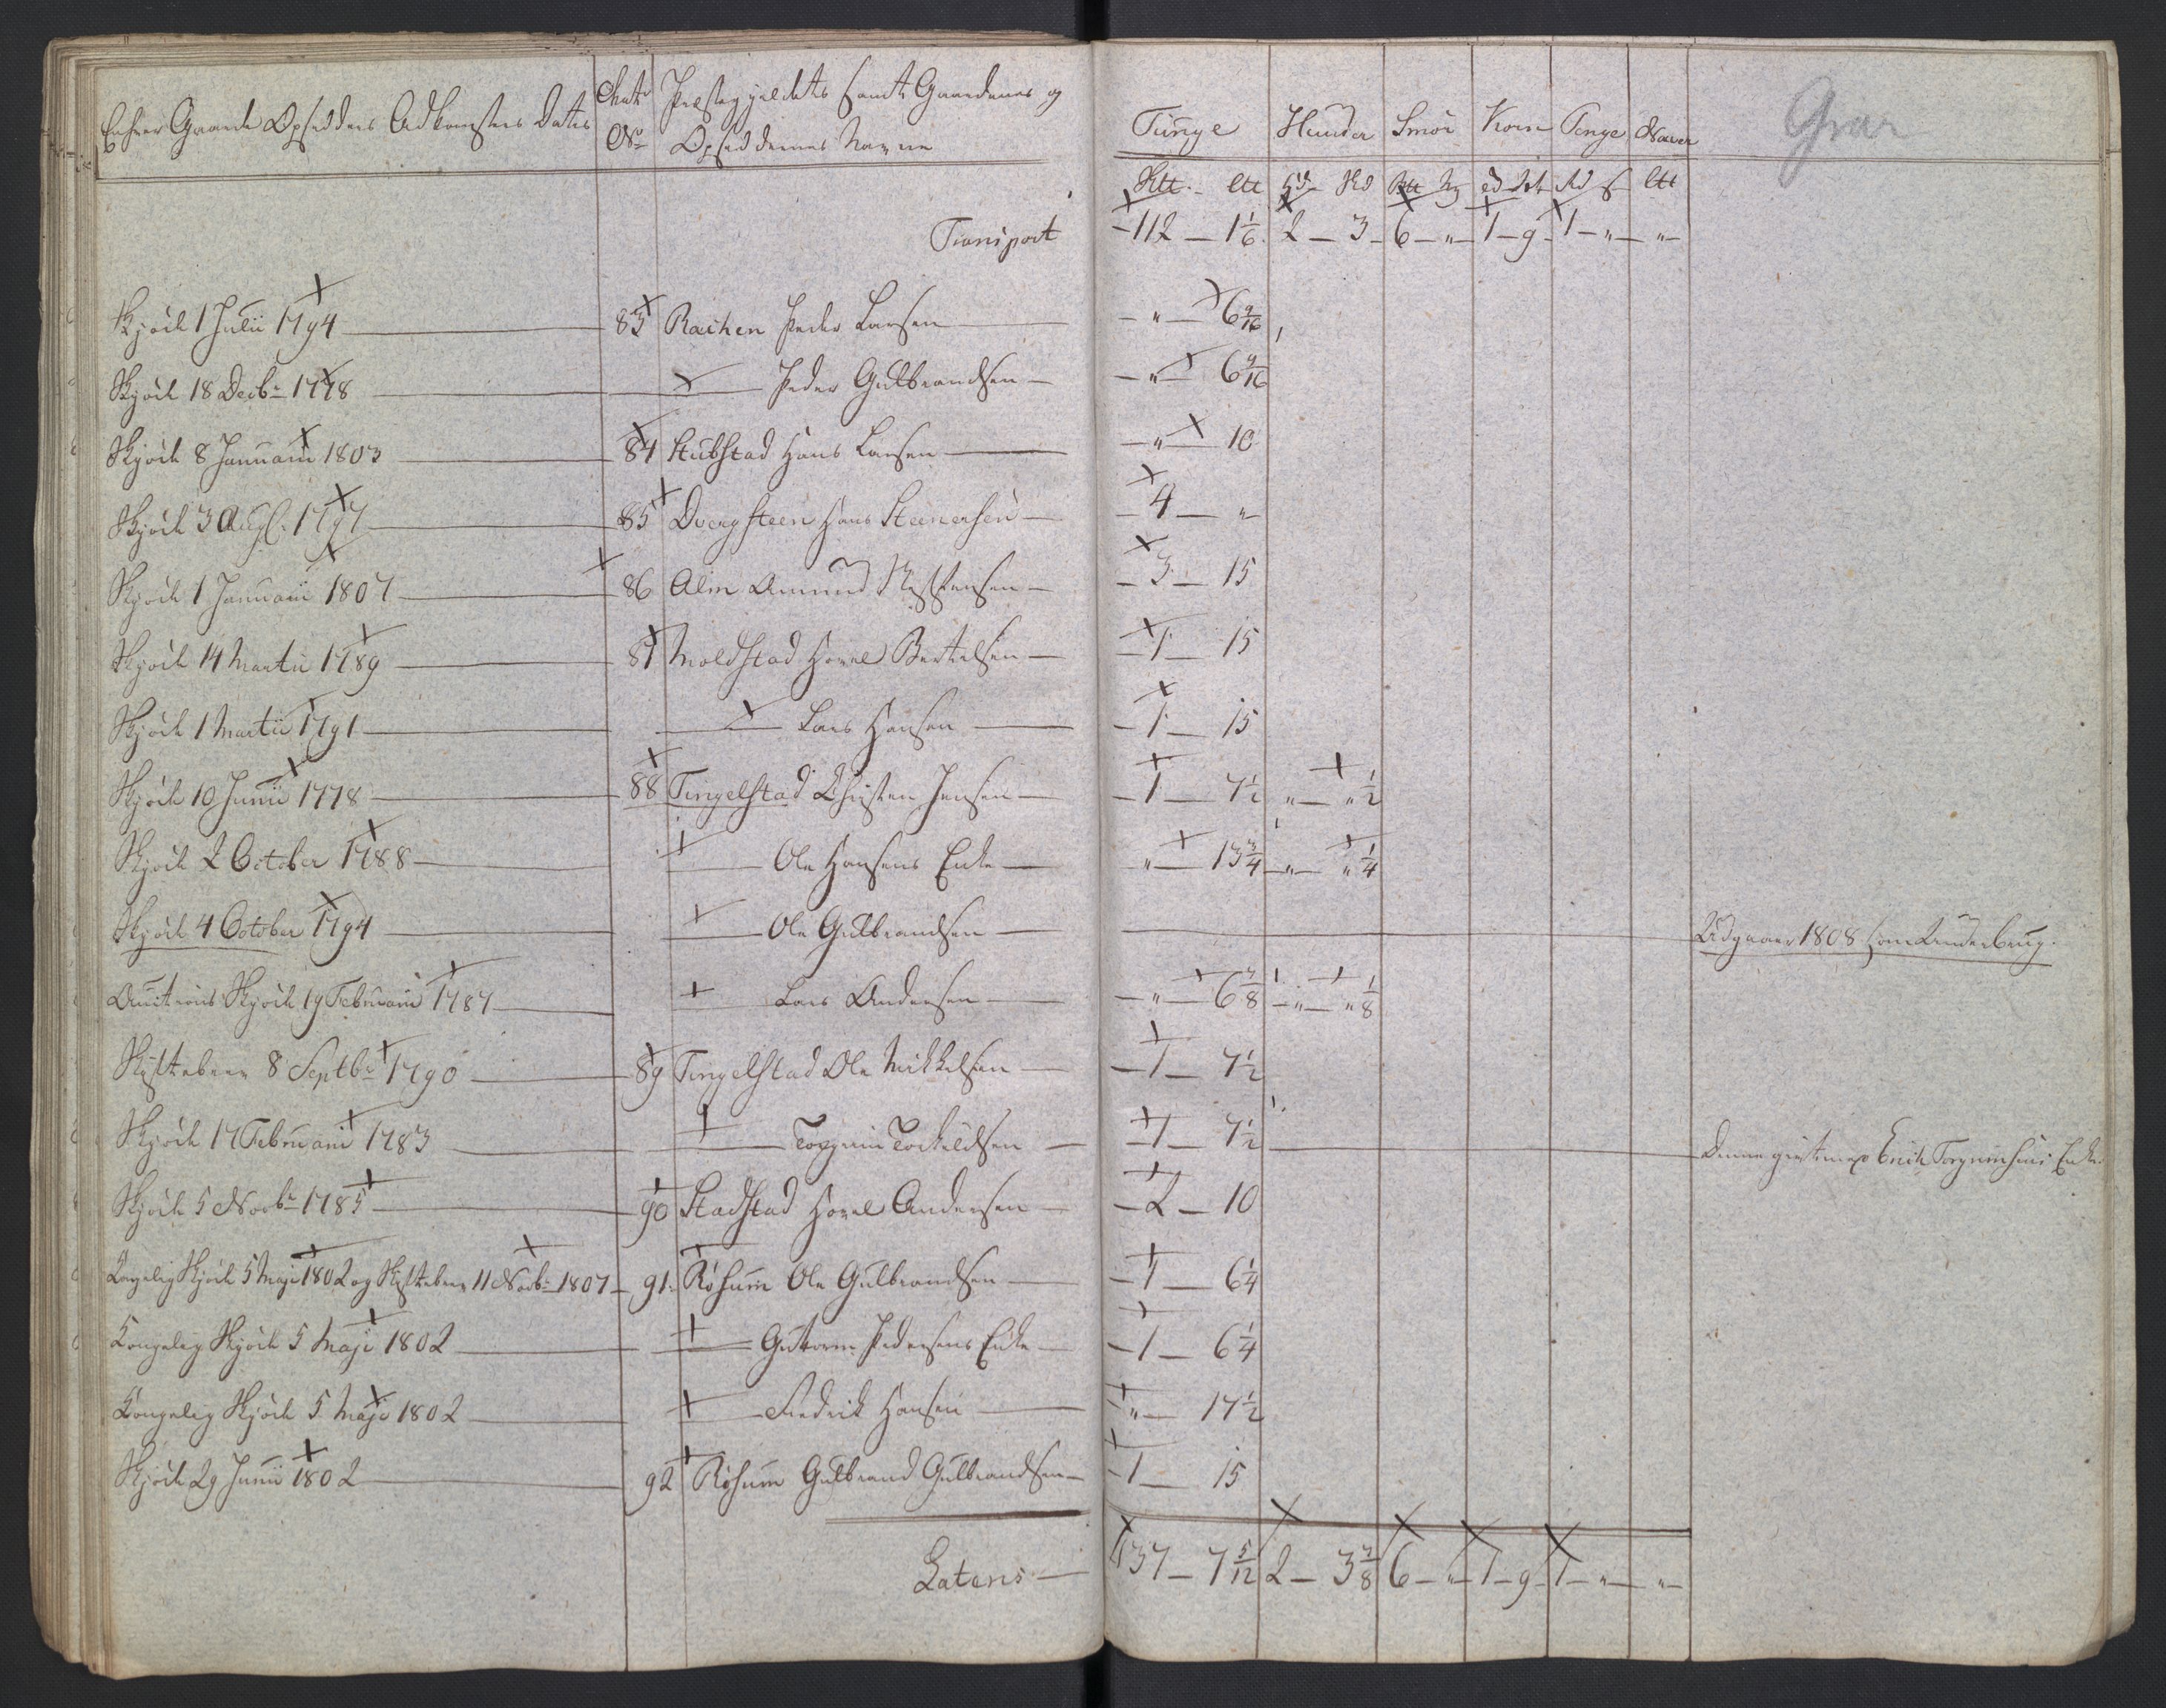 Enhver Gaards Opsidders Adkomsters Dato
Matr No
Præstegjeldets samt Gaardenes og
Opsiddernes Navne
Tunge Huuder Smör Korn Penge Naver
Grar
Transport 112 1 1/6 2 3 6 " 1 9 1 " "
Skjöde 1 Julii 1794 83 Rachen Peder Larsen " 6 9/16
Skjöde 18 Decbr 1778 Peder Gulbrandsen " 6 9/16
Skjöde 8 Januarii 1803 84 Stubstad Hans Larsen " 10
Skjöde 3 Aug. 1797 85 Dvergsteen Hans Steenersen 4 "
Skjöde 1 Januarii 1807 86 Alm Amund 3 15
Skjöde 14 Martii 1789 87 Moldstad Hovel Bertelsen 1 15
Skjöde 1 Martii 1791 Lars Hansen 1 15
Skjöde 10 Junii 1778 88 Tingelstad Christen Jensen 1 7 1/2 " " 1/2
Skjöde 2 October 1788 Ole Hansens Enke " 13 3/4 " " 1/4
Skjöde 4 October 1794 Ole Gulbrandsen Udgaaer 1808 som Underbrug.
Auctions Skjöde 19 Februarii 1787 Lars Andersen " 6 7/8 " " 1/8
Skiftebrev 8 Septbr 1790 89 Tingelstad Ole Mikkelsen 1 7 1/2
Skjöde 17 Februarii 1783 Torgrim Torkildsen 1 7 1/2 Denne Torgrimsens Enke
Skjöde 5 Novbr 1785 90 Stadstad Hovel Andersen 2 10
Kongelig Skjöde 5 Maji 1802 og Skiftebrev 11 Novbr 1807 91 Röhum Ole Gulbrandsen 1 6 1/4
Kongelig Skjöde 5 Maji 1802 Guttorm Pedersens Enke 1 6 1/4
Kongelig Skjöde 5 Maji 1802 Fredrik Hansen " 17 1/2
Skjöde 29 Junii 1802 92 Röhum Gulbrand Gulbrandsen 1 15
Lateris 137 7 5/12 2 3 7/8 6 " 1 9 1 " "